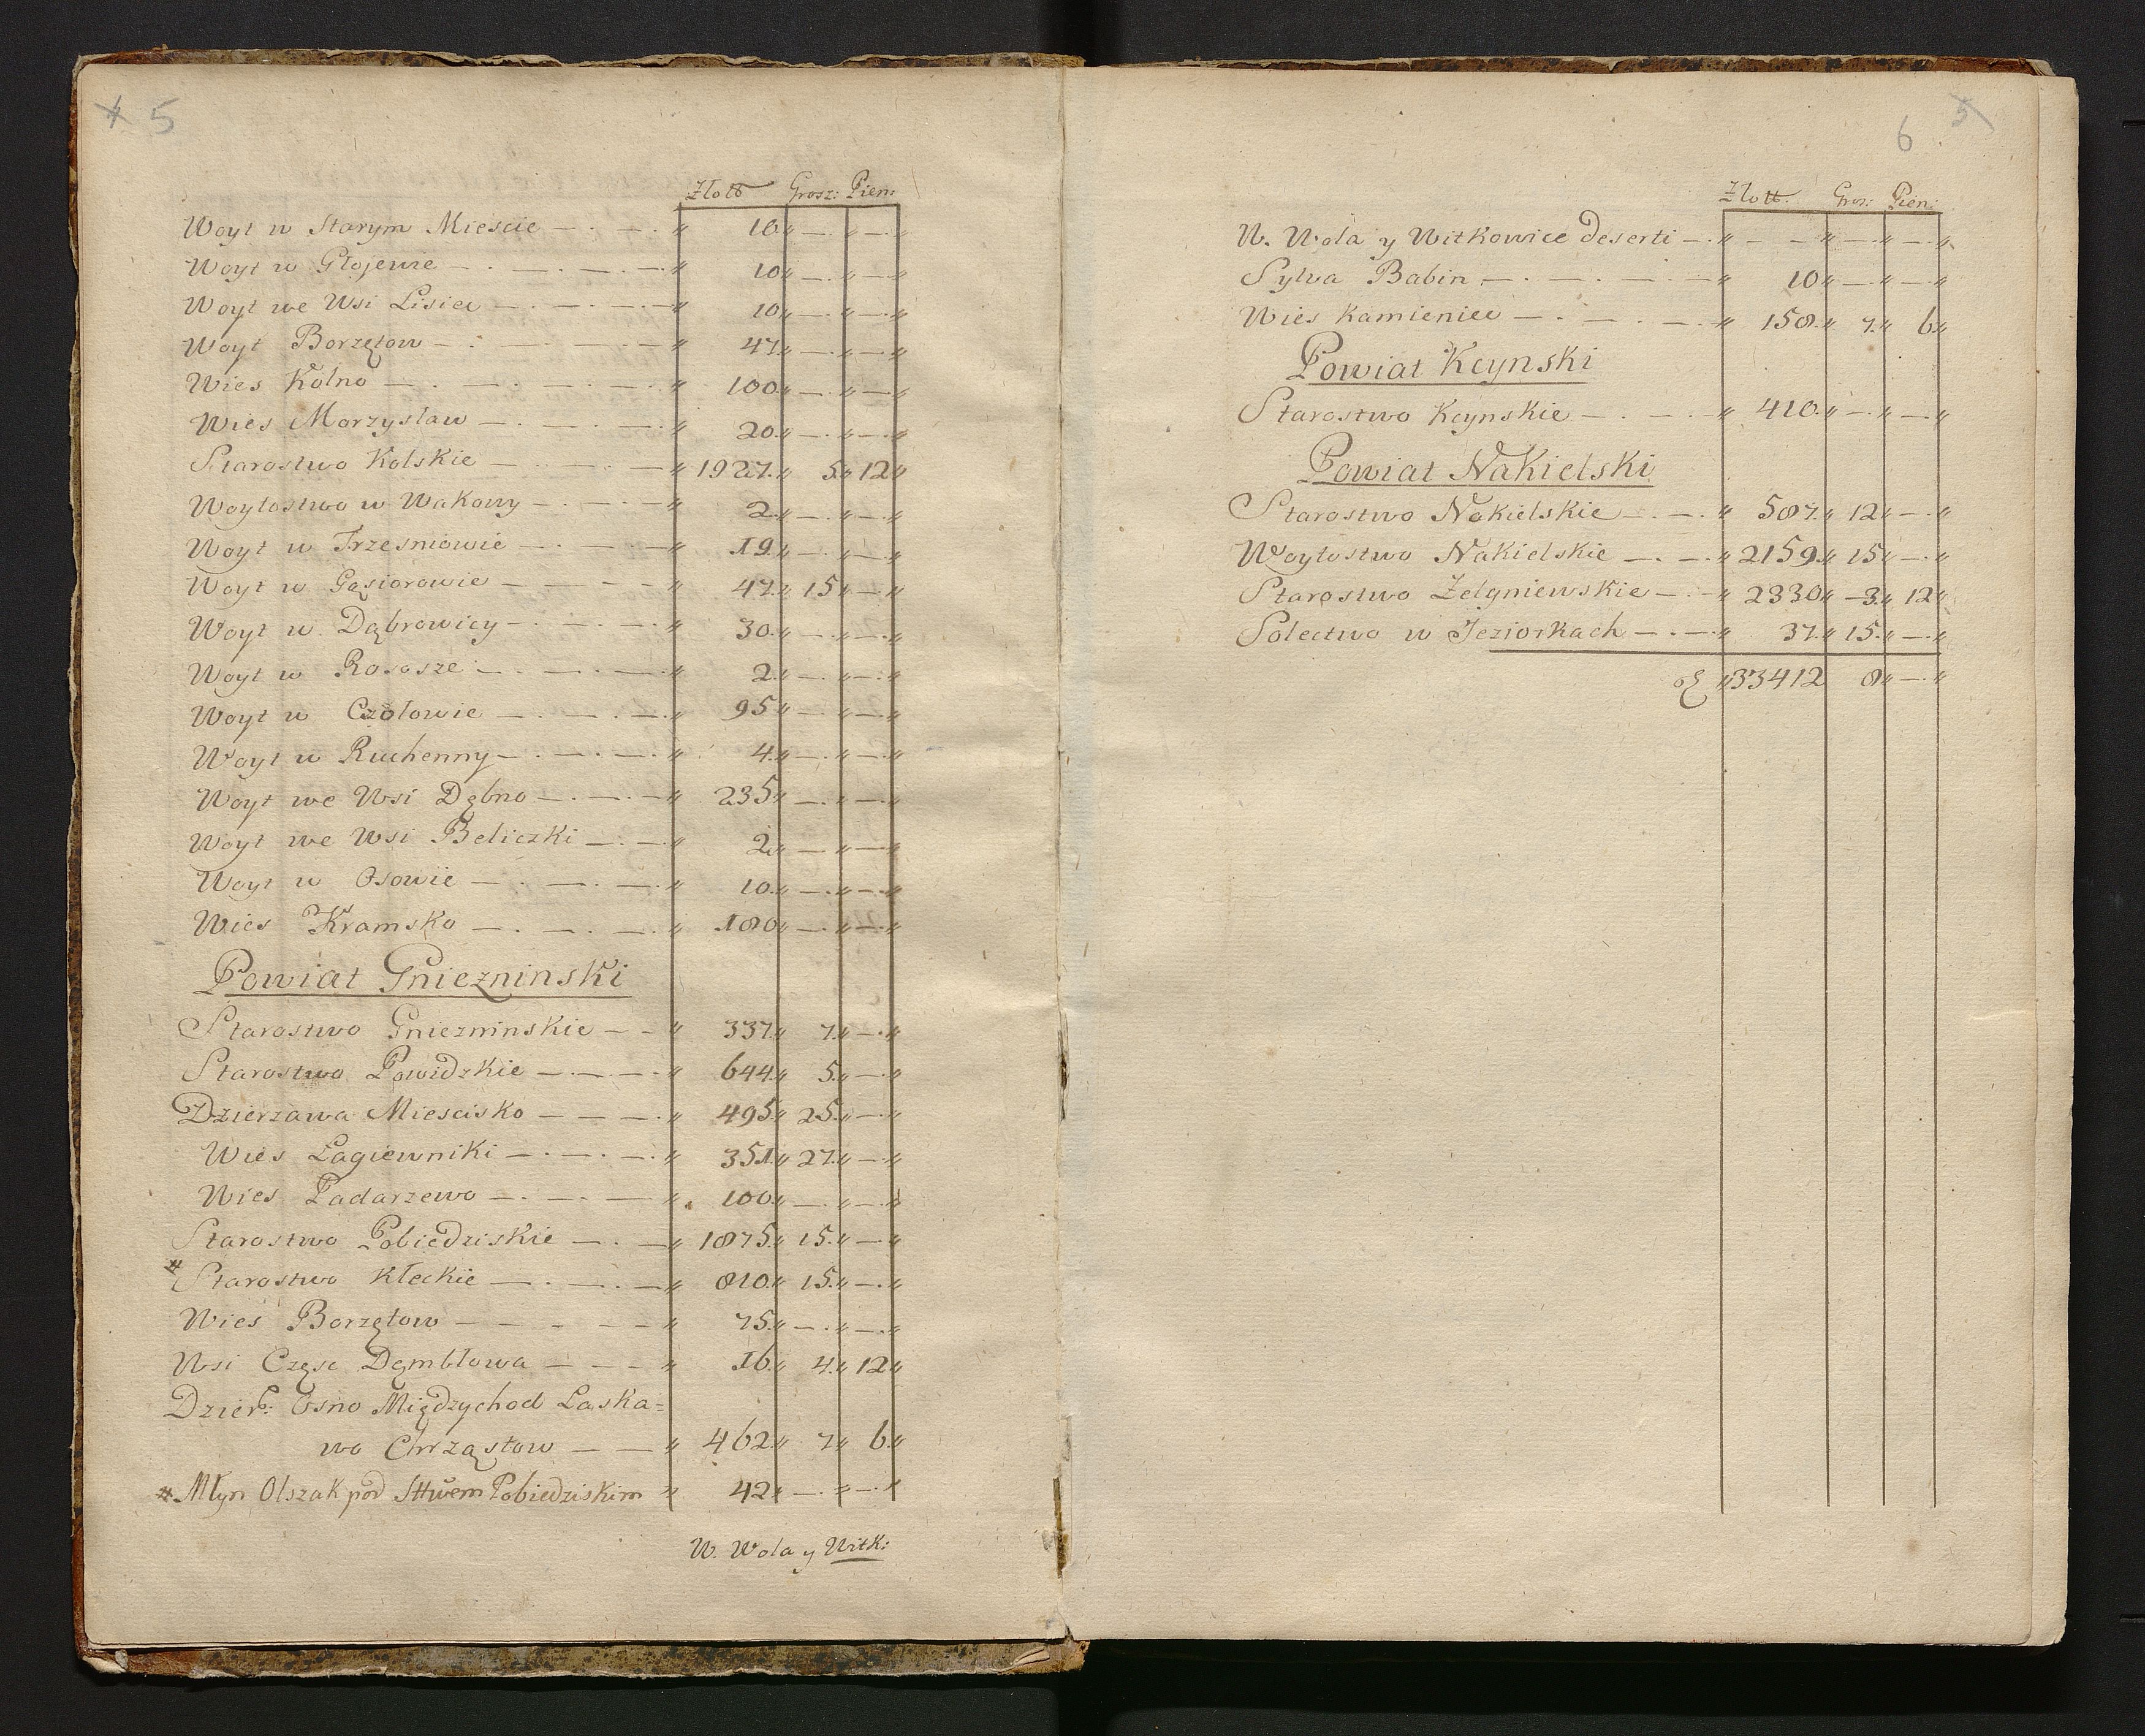 5
Złott Grosz: Pien:
Woyt w Starym Miescie — . — . „ 10 „ — . „ — . „
Woyt w Głojewie — . — . — . „ 10 „ — . „ — . „
Woyt we Wsi Lisiec — . — . — „ 10 „ — . „ — . „
Woyt Borzętow — . — . — „ 47 „ — . „ — . „
Wies Kolno — . — . — . — „ 100 „ — . „ — . „
Wies Morzysław — . — . — „ 20 „ — . „ — . „
Starostwo Kolskie — . — . — „ 1927 „ 5 „ 12 „
Woytostwo w Wakowy — . — . „ 2 „ — . „ — . „
Woyt w Trzesniowie — . — . „ 19 „ — . „ — . „
Woyt w Gąsiorowie — — — „ 47 „ 15 „ — . „
Woyt w Dąbrowicy — . — . — „ 30 „ — . „ — . „
Woyt w Rososze — . — . — „ 2 „ — . „ — . „
Woyt w Czołowie — . — . — „ 95 „ — . „ — . „
Woyt w Ruchenny — . — . — „ 4 „ — . „ — . „
Woyt we Wsi Dębno — . — . — „ 235 „ — . „ — . „
Woyt we Wsi Beliczki — . — „ 2 „ — . „ — . „
Woyt w Osowie — . — . — „ 10 „ — . „ — . „
Wies Kramsko — . — . — „ 180 „ — . „ — . „
Powiat Gniezninski
Starostwo Gniezninskie — — „ 337 „ 7 „ — . „
Starostwo Powidzkie — . — . — „ 644 „ 5 „ — . „
Dzierzawa Miescisko — — — . „ 495 „ 25 „ — . „
Wies Łagiewniki — . — . — . „ 351 „ 27 „ — . „
Wies Padarzewo — . — . — „ 100 „ — . „ — . „
Starostwo Pobiedziskie — . — „ 1875 „ 15 „ — . „
# Starostwo Kłeckie — . — . — „ 810 „ 15 „ — . „
Wies Borzętow — — — — „ 75 „ — . „ — . „
Wsi Częsc Dęmbłowa — — — „ 16 „ 4 „ 12 „
Dzier: Osno Międzychod Laska=
wo Chrząstow — — „ 462 „ 7 „ 6 „
# Młyn Olszak pod Sttwem Pobiedziskim „ 42 „ — . „ — . „
W. Wola y Witk:
5
6
Złott. Gros: Pien:
W. Wola y Witkowice deserti — . „ — — „ — . „ — . „
Sylva Babin — . — . — . — „ 10 „ — . „ — . „
Wies Kamieniec — . — . — „ 158 „ 7 „ 6 „
Powiat Kcynski
Starostwo Kcynskie — . — . „ 410 „ — . „ — . „
Powiat Nakielski
Starostwo Nakielskie — . — . „ 587 „ 12 „ — . „
Woytostwo Nakielskie — . — . „ 2159 „ 15 „ — . „
Starostwo Zelgniewskie — . — „ 2330 „ — 3 „ 12 „
Solectwo w Jeziorkach — . — „ 37 „ 15 „ — . „
„ 33412 8 „ — . „